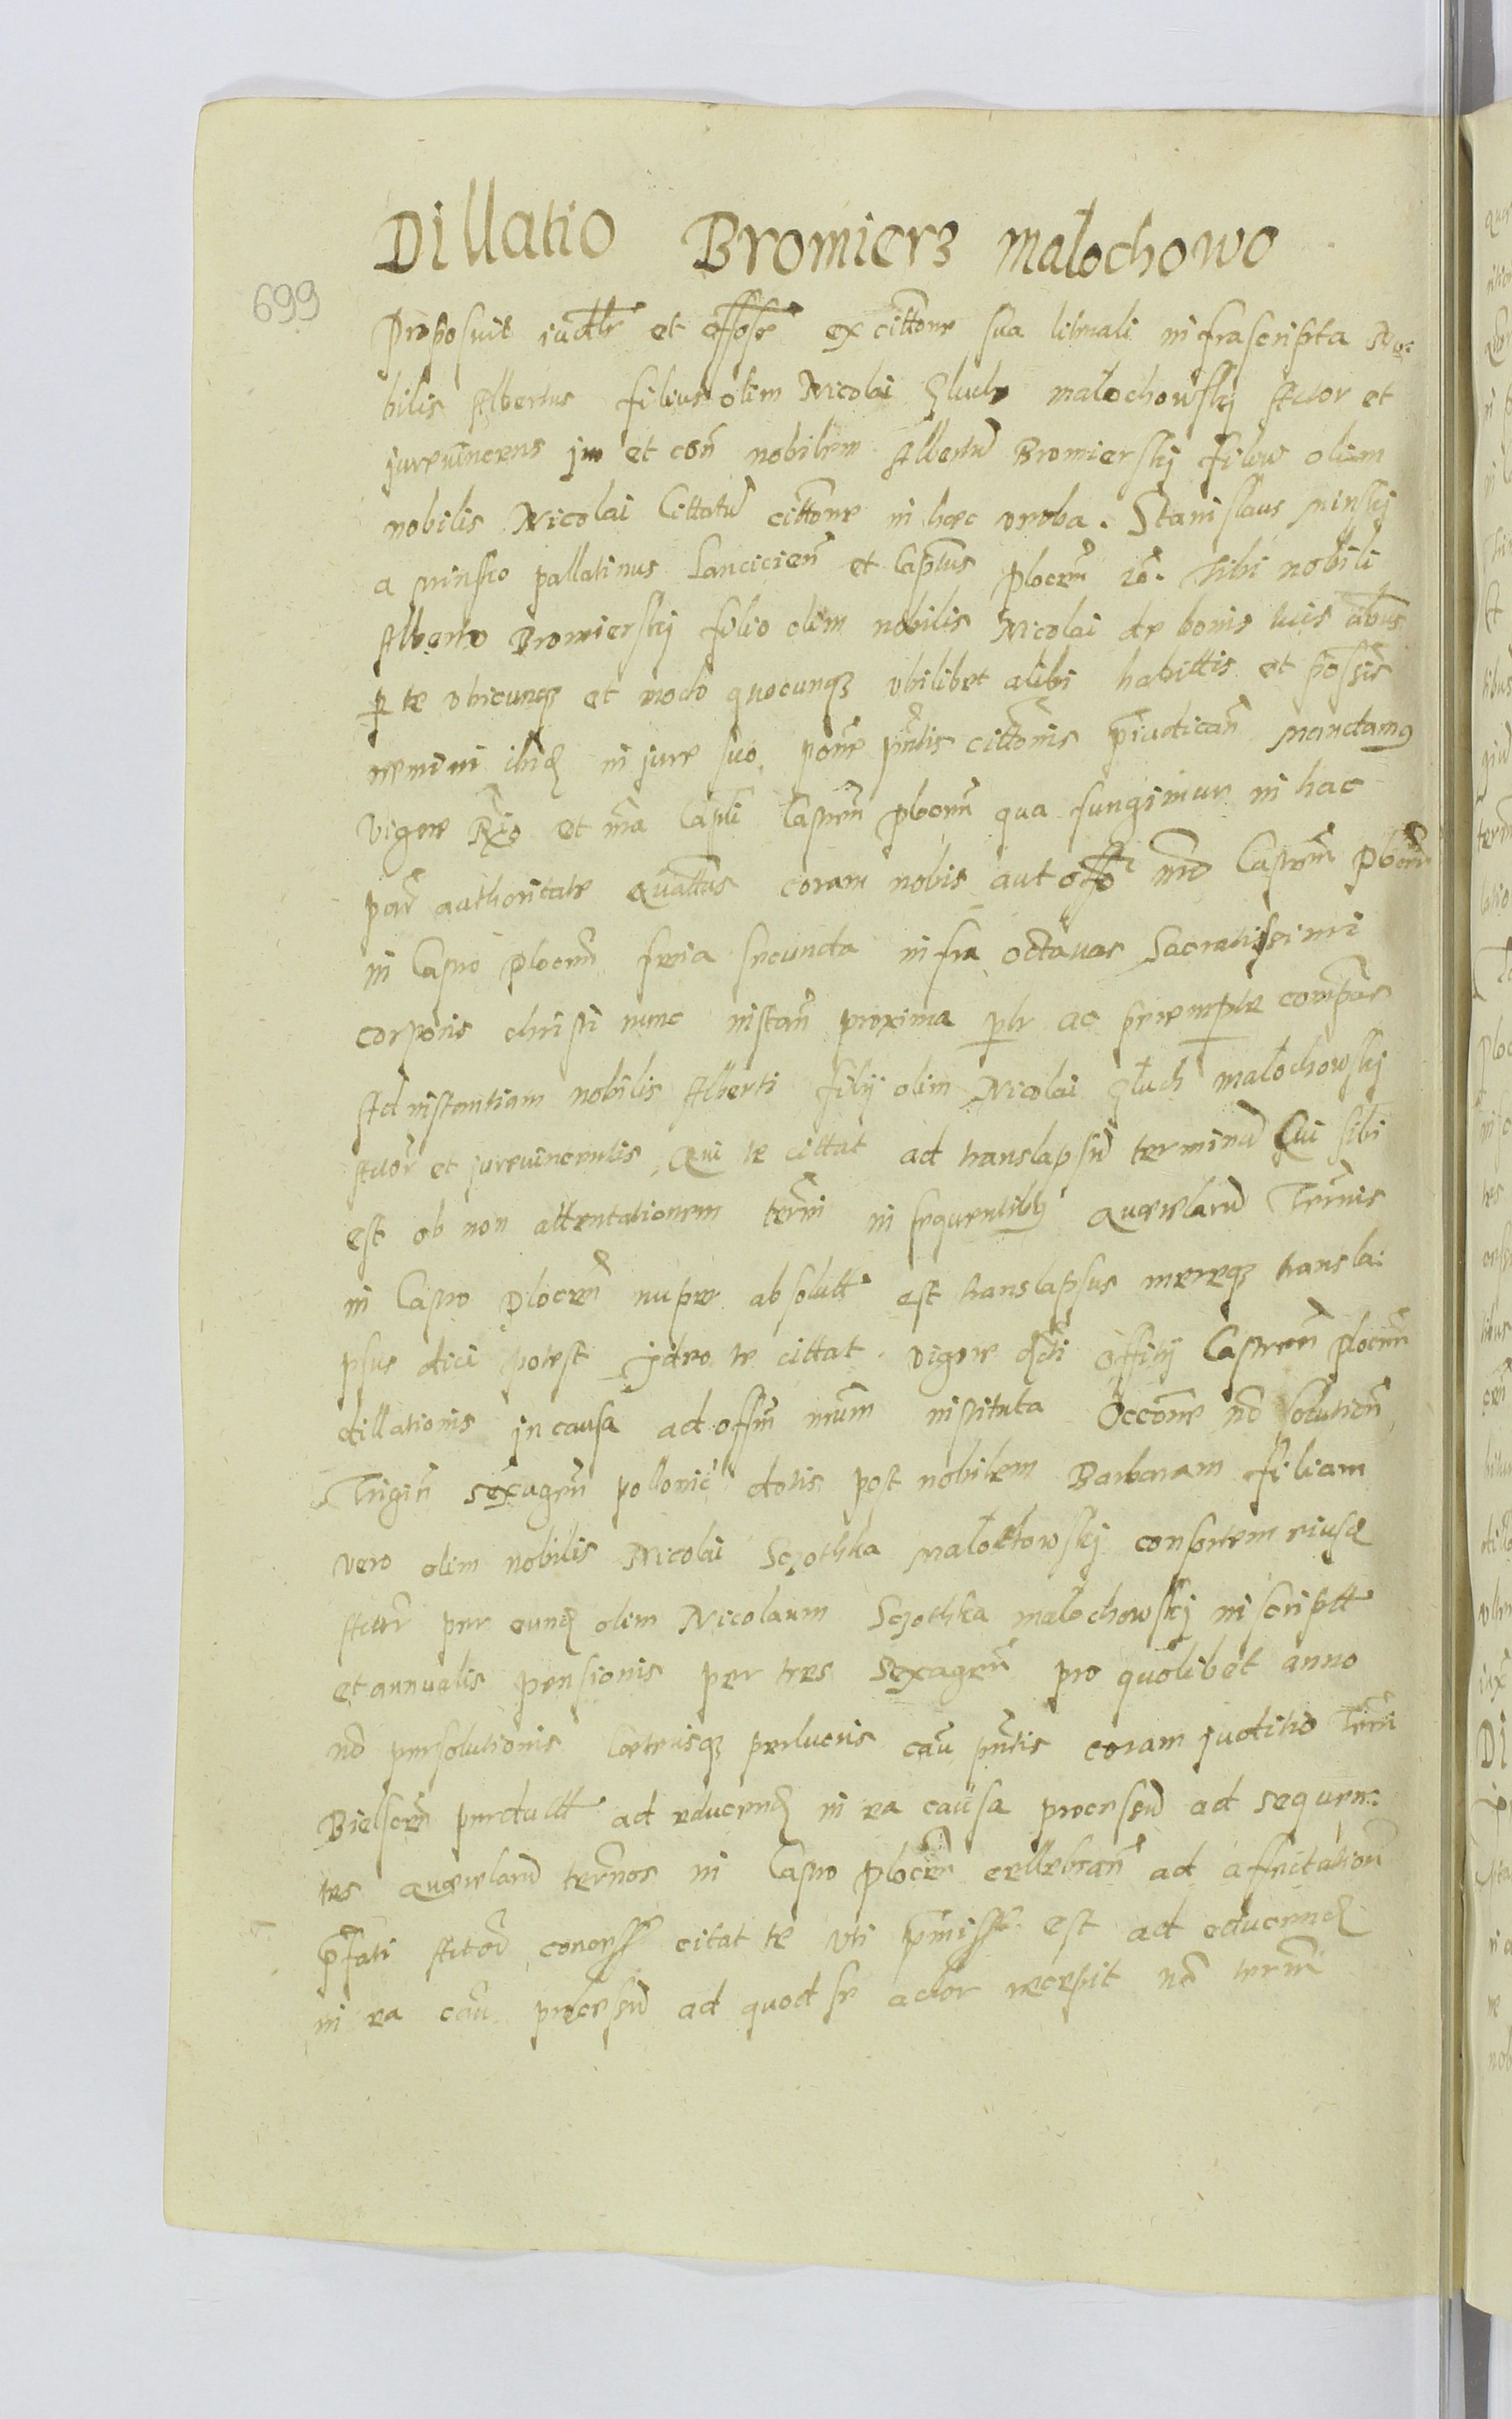 Dillatio Bromiers malochowo
699
Proposuit iudlr et effose ex cittone sua litnali infrascripta No:
bilis Albertus filius olim Nicolai Gluch malochowskj Actor et
jurevincens in et con nobilem Albertu Bromierskj filiu olim
nobilis Nicolai Cittatu cittone in haec verba. Stanislaus Minskj
a Minsko pallatinus Lancicien et Captus plocen zc. Tibi nobili
Alberto Bromierskj filio olim nobilis Nicolai de bonis tuis oibus
p te vbicunq et modo quocunq vbilibet alibi habittis et possis
nemini ibid in jure suo pone pntis cittonis piudican Mandamus
vigore Rgio et ma Capli Castren plocen qua fungimur in hac
par authoritate quattus coram nobis aut offo nro Castren Plocen
in Castro Plocen feria secunda infra octavas Sacratissimi
corporis christi nunc instan proxima plr ac peremptre compas
Ad instantiam nobilis Alberti filij olim Nicolai Gluch malochowskj
Actor et jurevincentis, Qui te cittat ad translapsu terminu Qui sibi
est ob non attentationem termi in sequentibus querelaru Termis
in Castro Plocen nuper absolutt est translapsus mereq transla:
psus dici potest Ideo te cittat vigore dcti offitij Castren Plocen
dillationis in causa ad offm nrum instituta Occone no solution
Trigin sexagen pollonic dotis post nobilem Barbaram filiam
vero olim nobilis Nicolai Sczothka malochowskj consortem eiusd
Actor per eund olim Nicolaum Sczothka malochowskj inscriptt
et annualis pensionis per tres sexagen pro quolibet anno
no persolutionis Coeterisq perlucris cau pntis coram juditio Terri
Bielscen perdutt ad educend in ea causa procesu ad sequen:
tes querelaru termos in Castro Plocen cellebran ad affectation
pfati Actor concess citat te uti pmiss est ad educend
in ea cau procesu ad quod se actor recepit no term